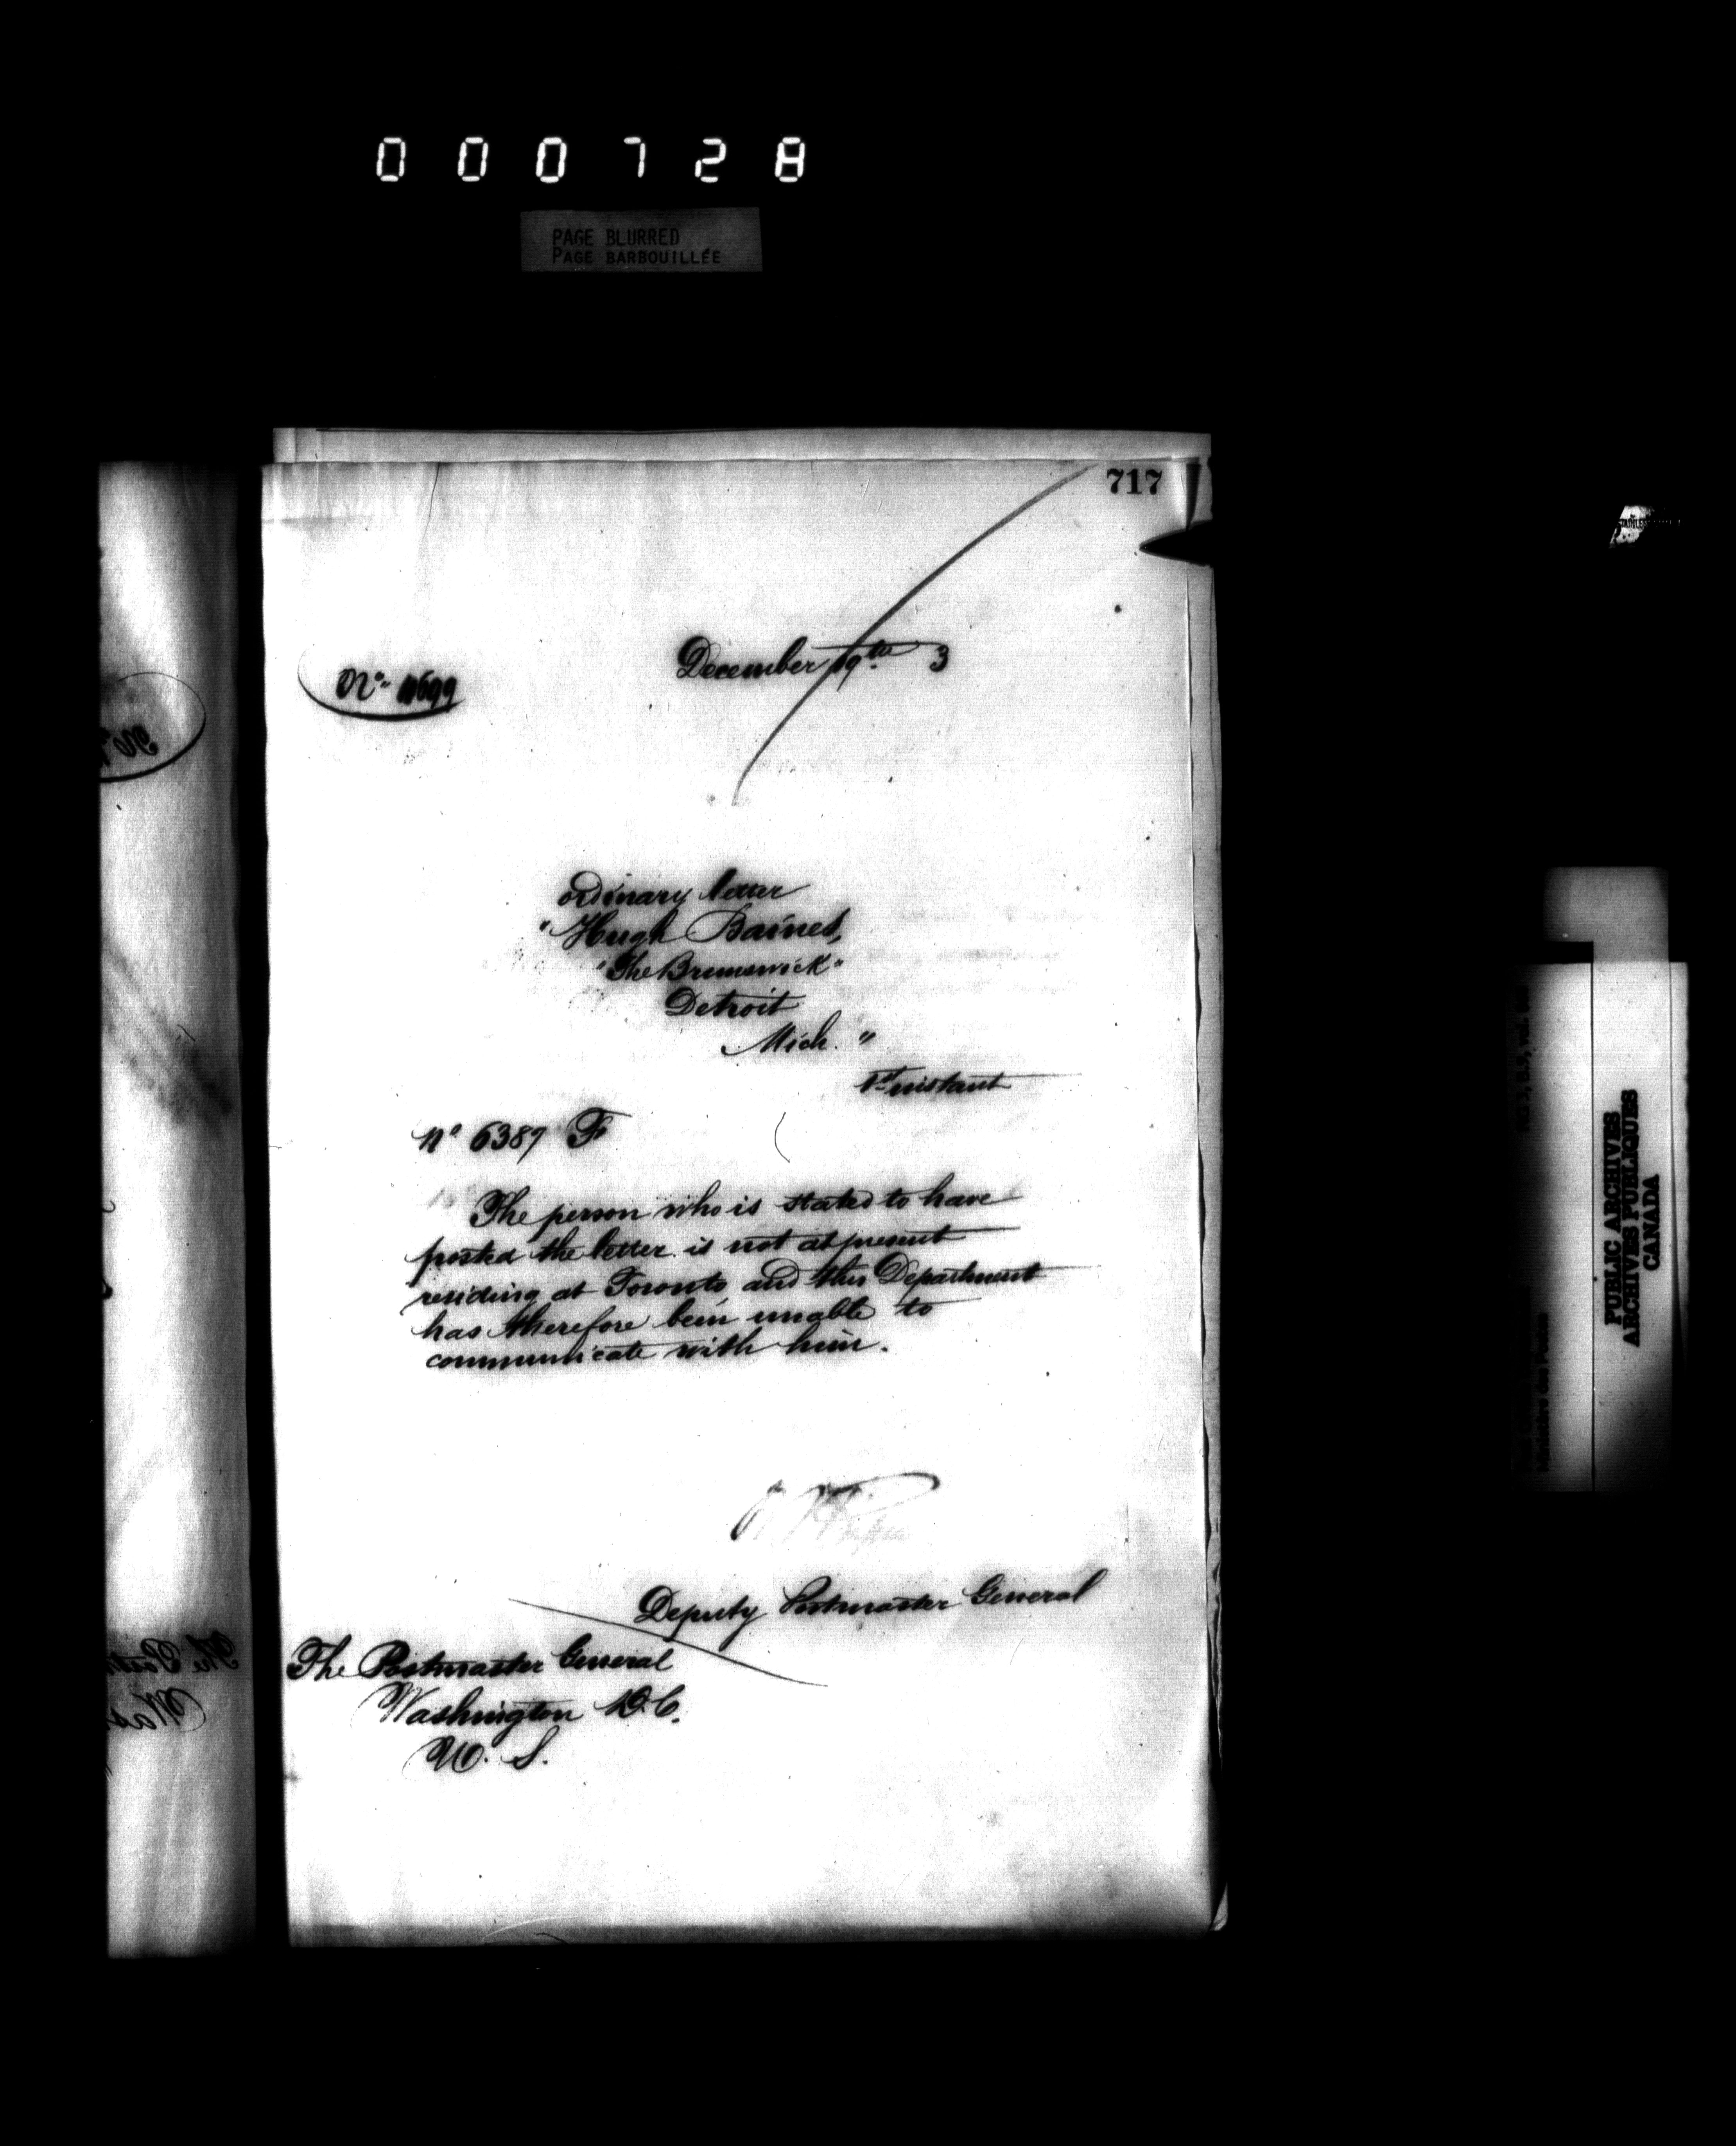 000728
PAGE BLURRED
PAGE BARBOUILLÉE
717
December 19th 3
No.
ordinary letter
"Hugh Baines,
"The Brunswick"
Detroit
Mich. "
1st instant
No 6387 F
The person who is stated to have
posted the letter is not at present
residing at Toronto and this Department
has therefore been unable to
communicate with him.
Deputy Postmaster General
The Postmaster General
Washington D.C.
U. S.
PUBLIC ARCHIVES
ARCHIVES PUBLIQUES
CANADA